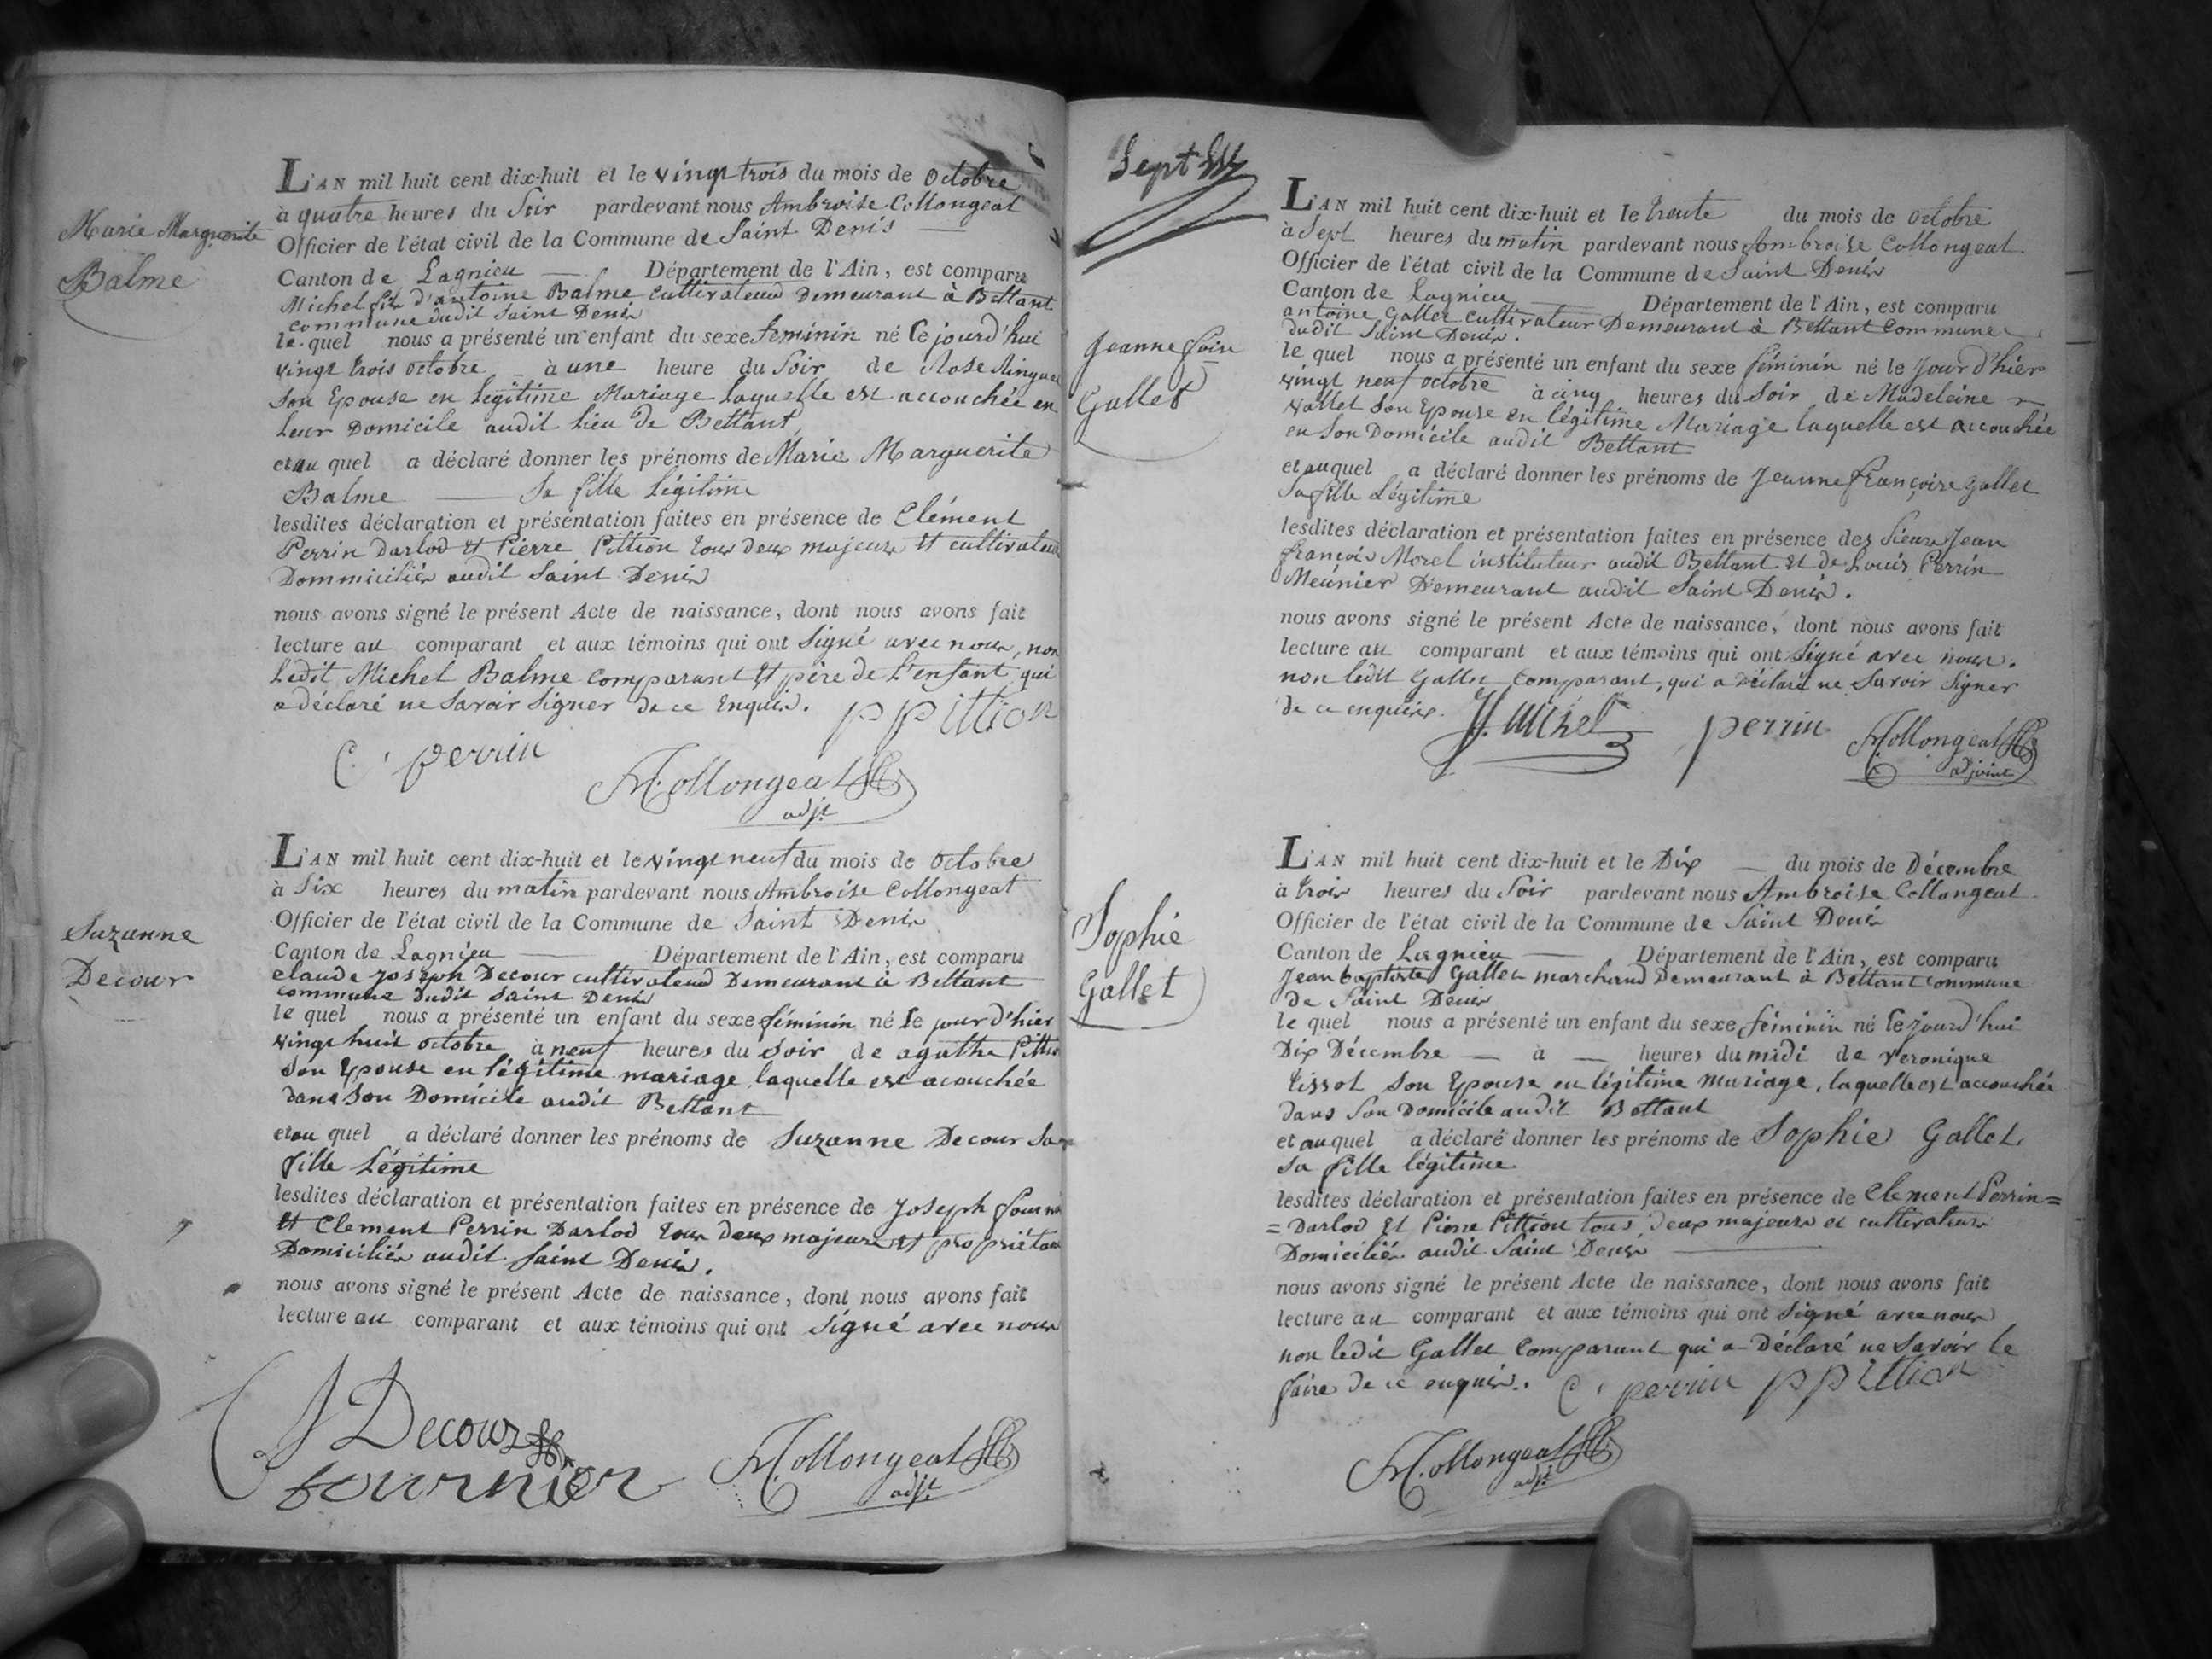 Marie Marguerite
Balme
L'AN mil huit cent dix-huit et le vingt trois du mois de octobre
à quatre heures du Soir pardevant nous Ambroise Collongeat
Officier de l'état civil de la Commune de Saint Denis
Canton de Lagnieu Département de l'Ain, est comparu
Michel fils d'antoine Balme cultivateur demeurant à Bettant
commune dudit Saint Denis
le quel nous a présenté un enfant du sexe feminin né Ce jourd'hui
vingt trois octobre à une heure du Soir de Rose
Son Epouse en légitime Mariage laquelle est accouchée en
leur Domicile audit lieu de Bettant
et au quel a déclaré donner les prénoms de Marie Marguerite
Balme Sa fille légitime
lesdites déclaration et présentation faites en présence de Clément
Perrin Darlod et Pierre Pittion tous deux majeurs et cultivateurs
Dommiciliés audit Saint Denis
nous avons signé le présent Acte de naissance, dont nous avons fait
lecture au comparant et aux témoins qui ont Signé avec nous, non
Ledit Michel Balme comparant et père de l'enfant qui
a déclaré ne Savoir Signer de ce Enquis.
p pittion
C. perrin
A. Collongeat
adjt
Suzanne
Decour
L'AN mil huit cent dix-huit et le vingt neuf du mois de octobre
à Six heures du matin pardevant nous Ambroise Collongeat
Officier de l'état civil de la Commune de Saint Denis
Canton de Lagnieu Département de l'Ain, est comparu
claude Joseph Decour cultivateur Demeurant à Bettant
commune dudit Saint Denis
le quel nous a présenté un enfant du sexe féminin né le jour d'hier
vingt huit octobre à neuf heures du Soir de agathe Pittion
Son Epouse en légitime mariage laquelle est acouchée
dans Son Domicile audit Bettant
et au quel a déclaré donner les prénoms de Suzanne Decour Sa
fille Légitime
lesdites déclaration et présentation faites en présence de Joseph fournier
et Clement Perrin Darlod tous deux majeurs et propriétaires
Domiciliés audit Saint Denis.
nous avons signé le présent Acte de naissance, dont nous avons fait
lecture au comparant et aux témoins qui ont Signé avec nous
J Decour
fournier
A. Collongeat
adjt
Sept
Jeanne foise
Gallet
L'AN mil huit cent dix-huit et le trente du mois de octobre
à Sept heures du matin pardevant nous Ambroise Collongeat
Officier de l'état civil de la Commune de Saint Denis
Canton de Lagnieu Département de l'Ain, est comparu
antoine Gallet cultivateur Demeurant à Bettant Commune
dudit Saint Denis.
le quel nous a présenté un enfant du sexe féminin né le Jour d'hier
vingt neuf octobre à cinq heures du Soir de Madeleine
Vallet Son Epouse en légitime Mariage laquelle est accouchée
en Son Domicile audit Bettant
et auquel a déclaré donner les prénoms de Jeanne françoise Gallet
Sa fille Légitime
lesdites déclaration et présentation faites en présence des Sieurs Jean
françois Morel instituteur audit Bettant et de Louis Perrin
Meûnier Demeurant audit Saint Denis.
nous avons signé le présent Acte de naissance, dont nous avons fait
lecture au comparant et aux témoins qui ont Signé avec nous.
non ledit Gallet Comparant, qui a déclaré ne Savoir Signer
de ce enquis.
perrin
A. Collongeat
adjoint
Sophie
Gallet
L'AN mil huit cent dix-huit et le Dix du mois de Décembre
à trois heures du Soir pardevant nous Ambroise Collongeat
Officier de l'état civil de la Commune de Saint Denis
Canton de Lagnieu Département de l'Ain, est comparu
Jean baptiste Gallet marchand Demeurant à Bettant commune
de Saint Denis
le quel nous a présenté un enfant du sexe féminin né Ce jourd'hui
Dix Décembre à heures du midi de Veronique
tissot Son Epouse en légitime mariage, laquelle est accouchée
dans Son Domicile audit Bettant
et auquel a déclaré donner les prénoms de Sophie Gallet
Sa fille légitime
lesdites déclaration et présentation faites en présence de Clement Perrin=
=Darlod et Pierre Pittion tous deux majeurs et cultivateurs
Domiciliés audit Saint Denis
nous avons signé le présent Acte de naissance, dont nous avons fait
lecture au comparant et aux témoins qui ont Signé avec nous
non ledit Gallet Comparant qui a Déclaré ne Savoir le
faire de ce enquis. C. perrin p pittion
A. Collongeat
adjt